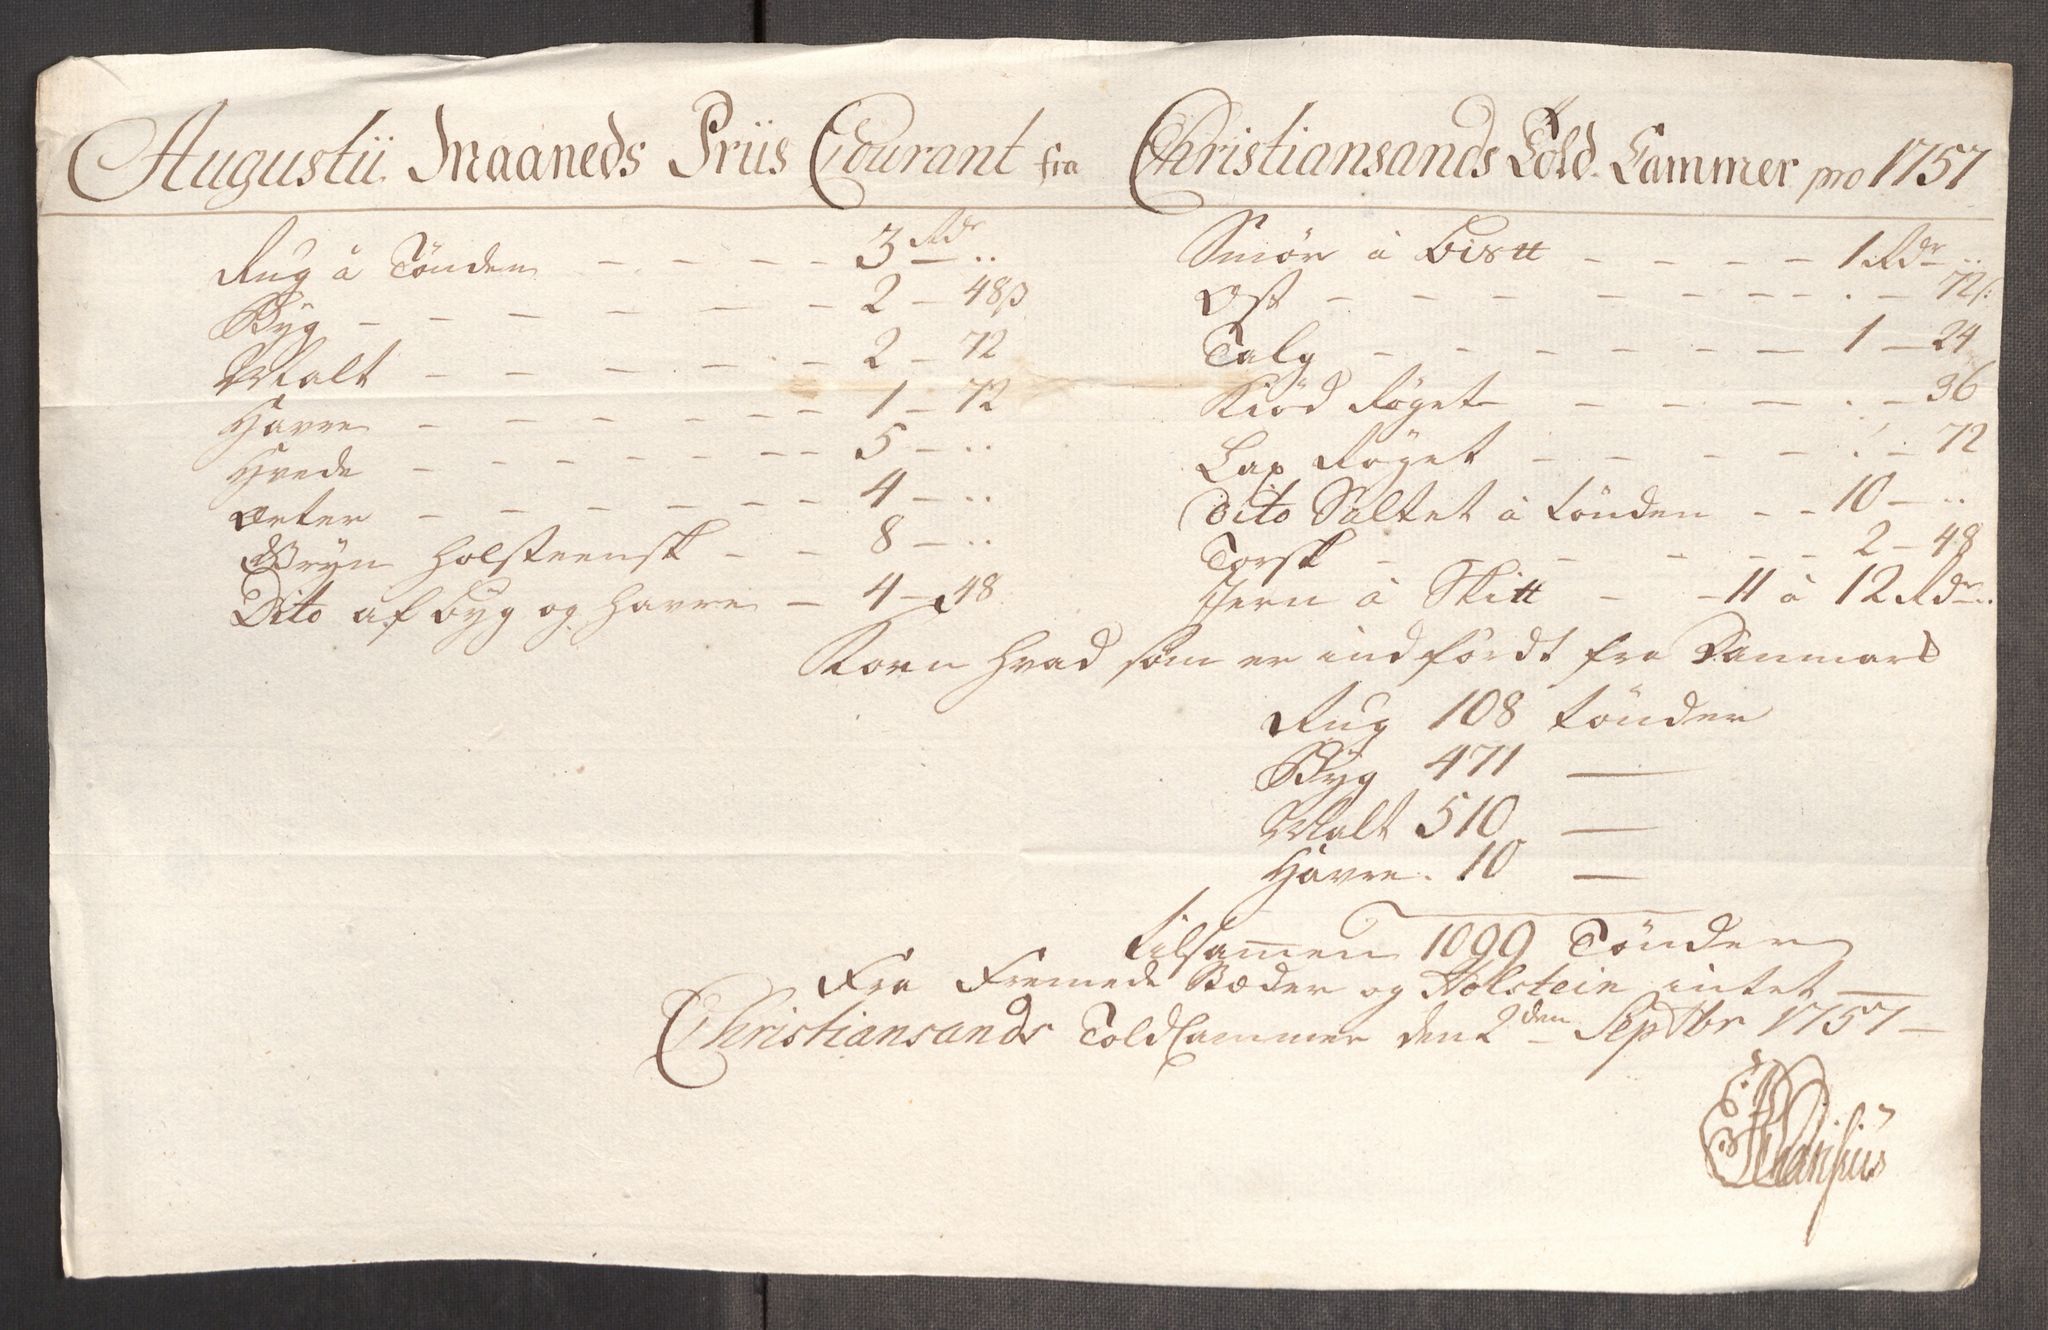 Augustii Maaneds Priis Courant fra Christiansands Told Cammer pro 1757
Rug à Tönden — — — — 3 Rdr ..
Byg — — — — — — — 2 — 48ß
Malt — — — — — — 2 — 72
Havre — — — — — — 1 — 72
Hvede — — — — — — 5 — ..
Ærter — — — — — — 4 — ..
Gryn Holsteensk — — 8 — ..
Dito af byg og havre — 4 — 48
Smör à Bis℔ — — — — 1 Rdr ..
Ost — — — — — — — — . — 72ß
Talg — — — — — — — 1 — 24
Kiöd Röget — — — — . — 36
Lax Röget — — — — — . — 72
Dito Saltet à tönden — — 10 — ..
Torsk — — — — — — 2 — 48
Jern à Ski℔ — — 11 à 12 Rdr ..
Korn hvad som er indfördt fra Danmark
Rug 108 tönder
Byg 471 —
Malt 510 —
Havre. 10 —
tilsamen 1099 Tönder
Fra Fremede Stæder og Holstein intet —
Christiansands Told Cammer den 2den Septbr 1757 —